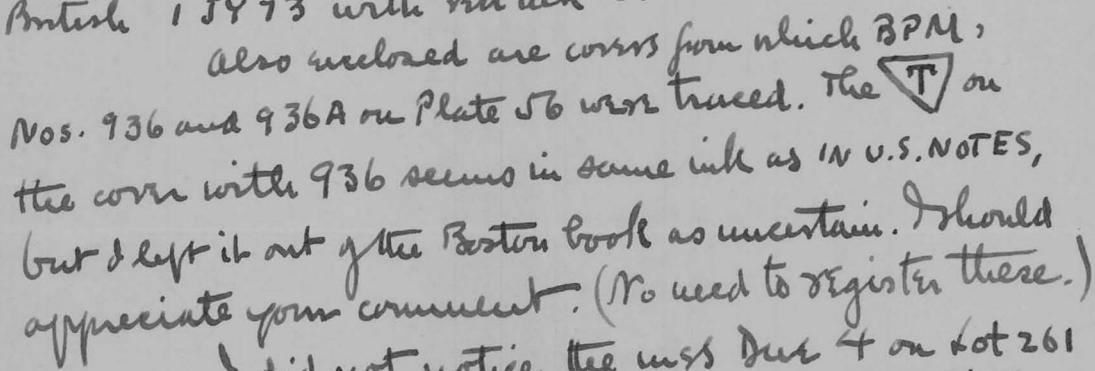 British 1 JY 73 with
Also enclosed are covers from which BPM,
Nos. 936 and 936A on Plate 56 were traced. The T on
the cover with 936 seems in same ink as IN U.S. NOTES,
but I left it out of the Boston book as uncertain. I should
appreciate your comment. (No need to register these.)
I did not notice the mss Due 4 on Lot 261